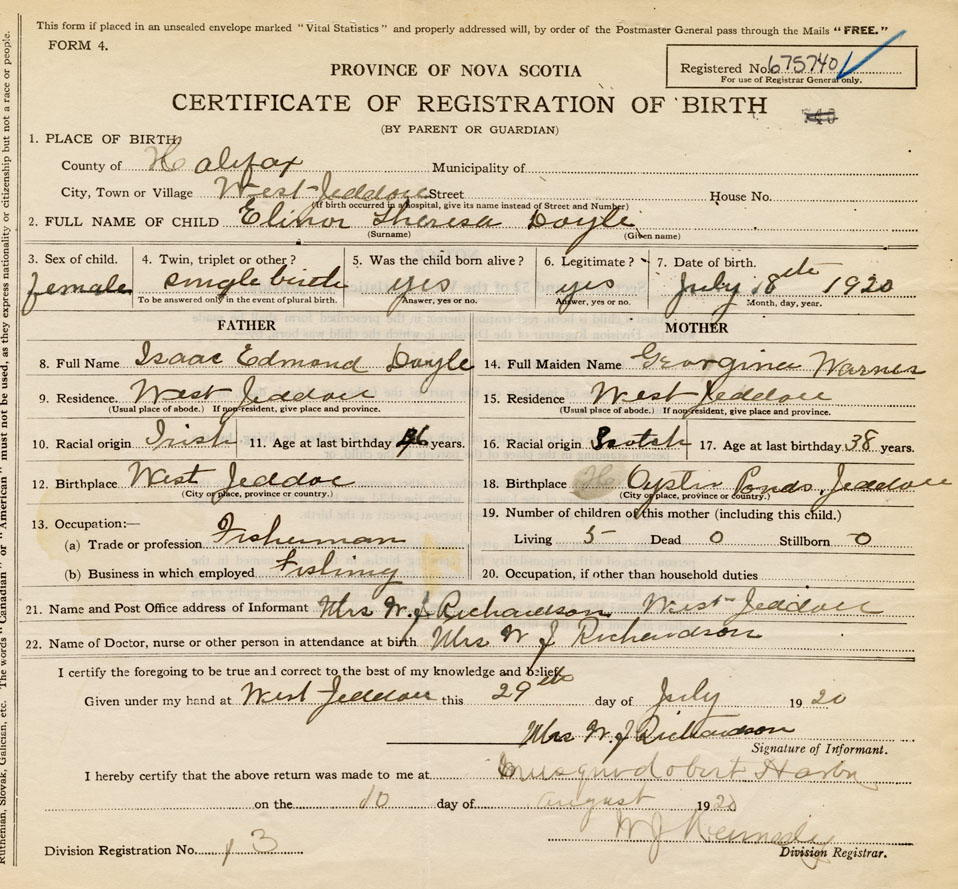 This form if placed in an unsealed envelope marked "Vital Statistics" and properly addressed will, by order of the Postmaster General pass through the Mails "FREE."
FORM 4.
Registered No. 675740
For use of Registrar General only.
PROVINCE OF NOVA SCOTIA
CERTIFICATE OF REGISTRATION OF BIRTH
(BY PARENT OR GUARDIAN)
1. PLACE OF BIRTH:
County of Halifax Municipality of
City, Town or Village West Jeddore Street House No.
(If birth occurred in a hospital, give its name instead of Street and Number)
2. FULL NAME OF CHILD Elinor Theresa Doyle
(Surname) (Given name)
3. Sex of child. 4. Twin, triplet or other? 5. Was the child born alive? 6. Legitimate? 7. Date of birth.
female single birth yes yes July 18th 1920
To be answered only in the event of plural birth. Answer, yes or no. Answer, yes or no. Month, day, year.
FATHER MOTHER
8. Full Name Isaac Edmond Doyle 14. Full Maiden Name Georgina Warner
9. Residence. West Jeddore 15. Residence West Jeddore
(Usual place of abode.) If non-resident, give place and province. (Usual place of abode.) If non-resident, give place and province.
10. Racial origin Irish 11. Age at last birthday years. 16. Racial origin Scotch 17. Age at last birthday 38 years.
12. Birthplace West Jeddore 18. Birthplace Oyster Ponds, Jeddore
(City or place, province or country.) (City or place, province or country.)
13. Occupation:— 19. Number of children of this mother (including this child.)
(a) Trade or profession Fisherman Living 5 Dead 0 Stillborn 0
(b) Business in which employed Fishing 20. Occupation, if other than household duties
21. Name and Post Office address of Informant Mrs W. J Richardson West Jeddore
22. Name of Doctor, nurse or other person in attendance at birth Mrs W J Richardson
I certify the foregoing to be true and correct to the best of my knowledge and belief.
Given under my hand at West Jeddore this 29th day of July 1920
Mrs W. J Richardson
Signature of Informant.
I hereby certify that the above return was made to me at Harbr
on the 10 day of august 1920
W J Kennedy
Division Registrar.
Division Registration No. 13
The words "Canadian" or "American" must not be used, as they express nationality or citizenship but not a race or people.
Ruthenian, Slovak, Galician, etc.